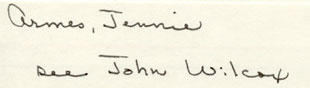 Armes, Jennie
see John Wilcox